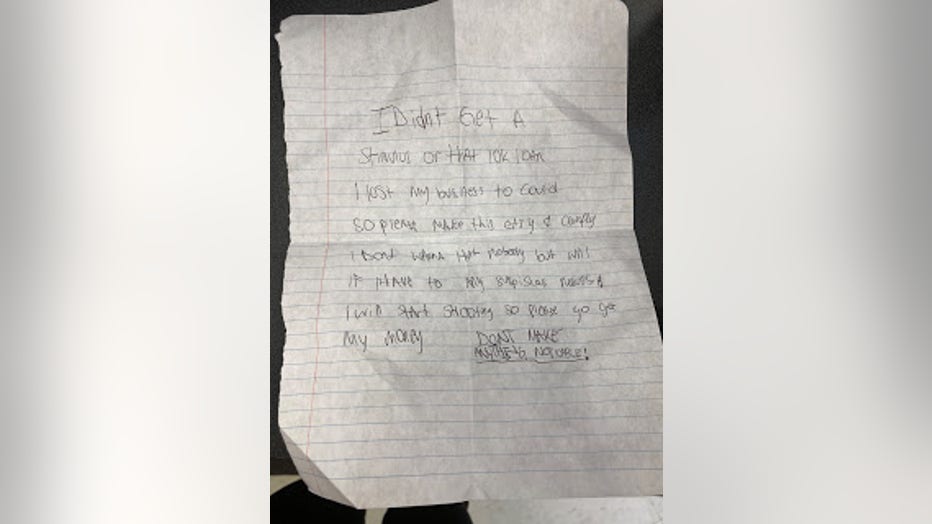 I Didnt Get A
Stimulus or that 10k loan
I lost my business to Covid
So please make this easy & comply
I Dont wanna Hurt nobody but will
if I HAVE to Any suspicious
I will start shooting so please go get
My money
DONT MAKE
ANYTHING NOTICABLE!